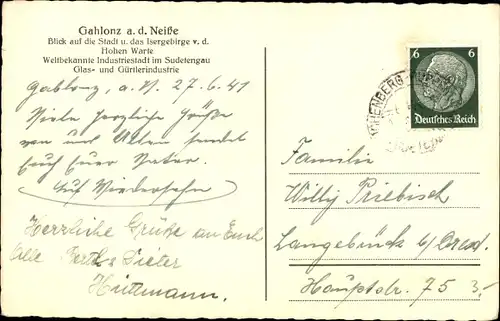 Gahlonz a. d. Neiße
Blick auf die Stadt u. das Isergebirge v. d.
Hohen Warte
Weltbekannte Industriestadt im Sudetengau
Glas- und Gürtlerindustrie
Gablonz, a. N. 27.6.41
Viele herzliche Grüße
von uns Allen sendet
Euch Euer Vater.
Auf Wiedersehn
Herzliche Grüße an Euch
Alle Berth. Dieter
Hüttmann.
6 6
Deutsches Reich
Familie
Willy Priebisch
Langebrück b/Dresd.
Hauptstr. 75